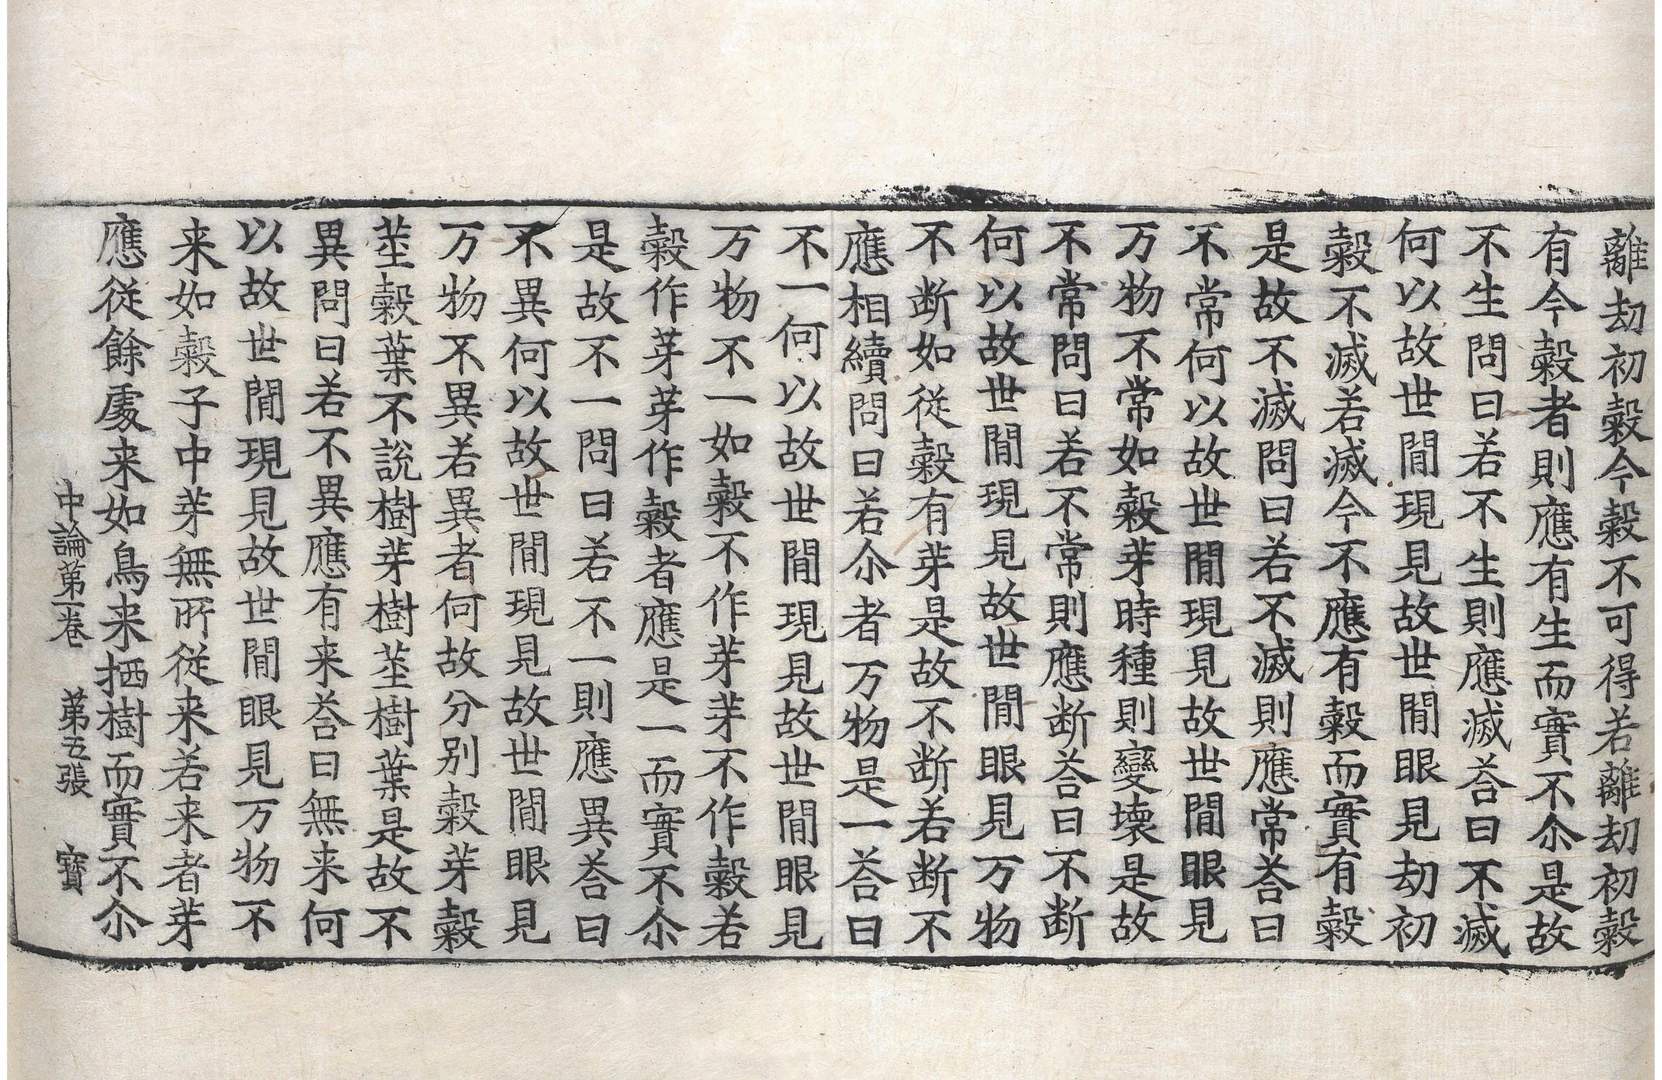 離劫初穀今穀不可得若離劫初穀
有今穀者則應有生而實不尒是故
不生問曰若不生則應滅荅曰不滅
何以故世閒現見故世閒眼見劫初
穀不滅若滅今不應有穀而實有穀
是故不滅問曰若不滅則應常荅曰
不常何以故世閒現見故世閒眼見
万物不常如穀芽時種則變壞是故
不常問曰若不常則應断荅曰不断
何以故世閒現見故世閒眼見万物
不断如從穀有芽是故不断若断不
應相續問曰若尒者万物是一荅曰
不一何以故世閒現見故世閒眼見
万物不一如穀不作芽芽不作穀若
穀作芽芽作穀者應是一而實不尒
是故不一問曰若不一則應異荅曰
不異何以故世閒現見故世閒眼見
万物不異若異者何故分別穀芽穀
莖穀葉不說樹芽樹莖樹葉是故不
異問曰若不異應有来荅曰無来何
以故世閒現見故世閒眼見万物不
来如穀子中芽無所從来若来者芽
應從餘處来如鳥来栖樹而實不尒
中論第一卷　第五張　寶